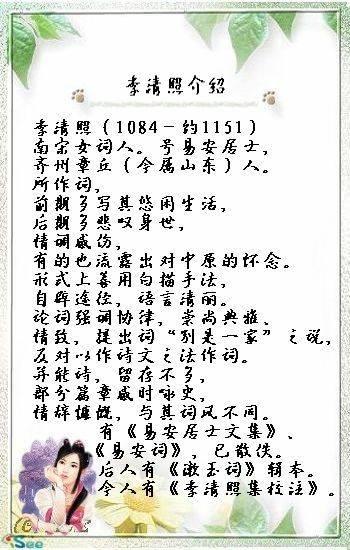 李清照介绍
李清照（1084－约1151）
南宋女词人。号易安居士，
齐州章丘（今属山东）人。
所作词，
前期多写其悠闲生活，
后期多悲叹身世，
情调感伤，
有的也流露出对中原的怀念。
形式上善用白描手法，
自辟途径，语言清丽。
论词强调协律，崇尚典雅、
情致，提出词“别是一家”之说，
反对以作诗文之法作词。
并能诗，留存不多，
部分篇章感时咏史，
情辞慷慨，与其词风不同。
有《易安居士文集》、
《易安词》，已散佚。
后人有《漱玉词》辑本。
今人有《李清照集校注》。
See